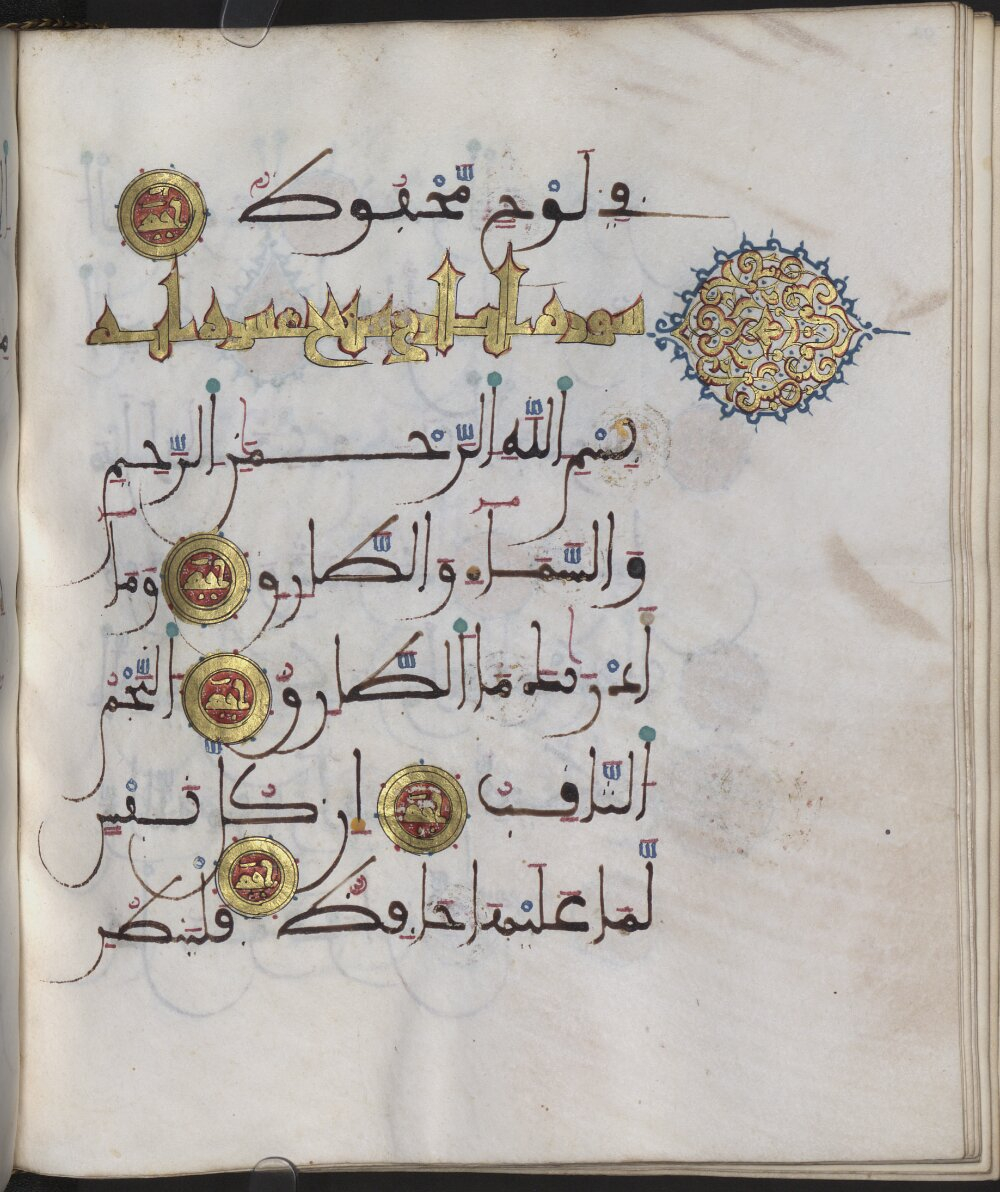 فِي لَوْحٍ مَّحْفُوظٌ
سورة الطارق سبع عشرة اية
بِسْمِ اللَّهِ الرَّحْمَٰنِ الرَّحِيمِ
وَالسَّمَاءِ وَالطَّارِقِ وَمَا
أَدْرَيٰكَ مَا الطَّارِقُ النَّجْمُ
الثَّاقِبُ إِن كُلُّ نَفْسٍ
لَّمَا عَلَيْهَا حَافِظٌ فَلْيَنظُرِ